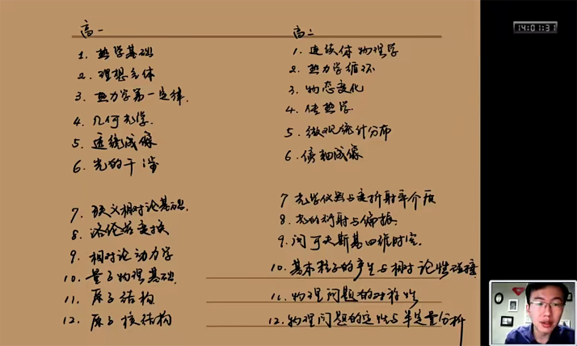 高一
1. 热学基础
2. 理想气体
3. 热力学第一定律.
4. 几何光学.
5. 透镜成像
6. 光的干涉
7. 狭义相对论基础.
8. 洛伦兹变换
9. 相对论动力学
10. 量子物理基础.
11. 原子结构
12. 原子核结构
高二
1. 连续体物理学
2. 热力学循环
3. 物态变化
4. 传热学
5. 微观统计分布
6. 傍轴成像
7 光学仪器与变折射率介质
8. 光的衍射与偏振.
9. 闵可夫斯基四维时空.
10. 基本粒子的产生与相对论性碰撞
11. 物理问题的对称性
12. 物理问题的定性与半定量分析
14:01:31